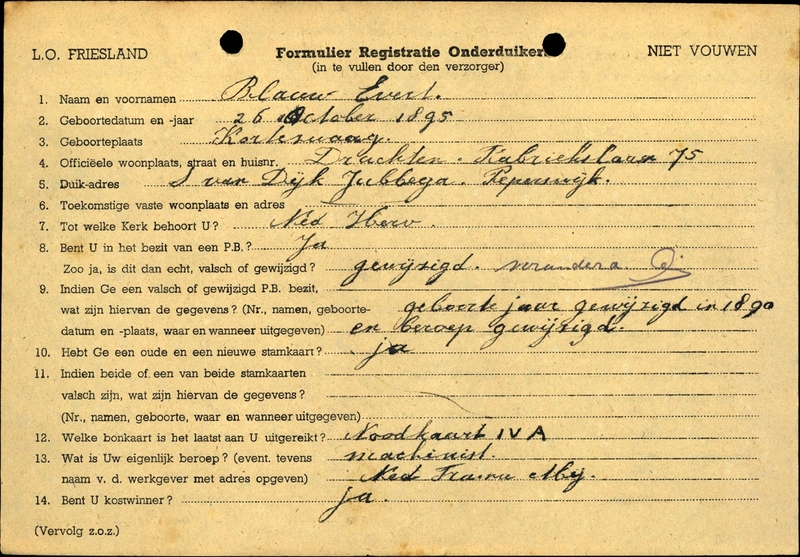 L.O. FRIESLAND
Formulier Registratie Onderduikers
NIET VOUWEN
(in te vullen door den verzorger)
1. Naam en voornamen Blauw Evert.
2. Geboortedatum en -jaar 26 October 1895
3. Geboorteplaats Korteswaag.
4. Officiëele woonplaats, straat en huisnr. Drachten. Fabriekslaan 75
5. Duik-adres S van Dijk Jubbega. Peperswijk.
6. Toekomstige vaste woonplaats en adres
7. Tot welke Kerk behoort U? Ned Herv.
8. Bent U in het bezit van een P.B.? Ja
Zoo ja, is dit dan echt, valsch of gewijzigd? gewijzigd.
9. Indien Ge een valsch of gewijzigd P.B. bezit,
wat zijn hiervan de gegevens? (Nr., namen, geboorte- geboorte jaar gewijzigd in 1890
datum en -plaats, waar en wanneer uitgegeven) en beroep gewijzigd.
10. Hebt Ge een oude en een nieuwe stamkaart? ja
11. Indien beide of een van beide stamkaarten
valsch zijn, wat zijn hiervan de gegevens?
(Nr., namen, geboorte, waar en wanneer uitgegeven)
12. Welke bonkaart is het laatst aan U uitgereikt? Noodkaart IV A
13. Wat is Uw eigenlijk beroep? (event. tevens machinist.
naam v. d. werkgever met adres opgeven) Ned Tramu Mij.
14. Bent U kostwinner? ja.
(Vervolg z.o.z.)